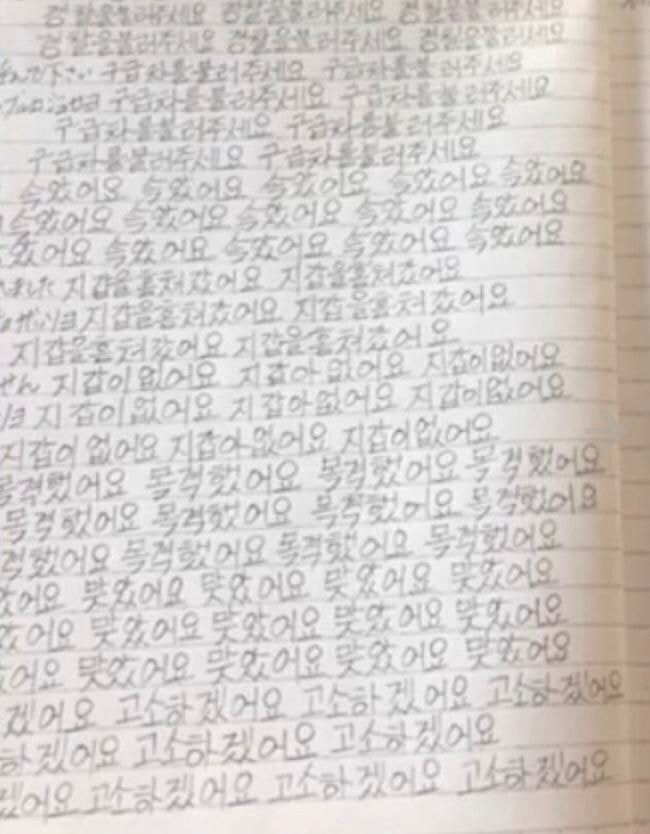 경찰을불러주세요 경찰을불러주세요 경찰을불러주세요
경찰을불러주세요 경찰을불러주세요 경찰을불러주세요
んで下さい 구급차를불러주세요 구급차를불러주세요
구급차를불러주세요 구급차를불러주세요
구급차를불러주세요 구급차를불러주세요
구급차를불러주세요 구급차를불러주세요
속았어요 속았어요 속았어요 속았어요 속았어요
속았어요 속았어요 속았어요 속았어요 속았어요
았어요 속았어요 속았어요 속았어요 속았어요
ました 지갑을훔쳐갔어요 지갑을훔쳐갔어요
지갑을훔쳐갔어요 지갑을훔쳐갔어요
지갑을훔쳐갔어요 지갑을훔쳐갔어요
せん 지갑이없어요 지갑아없어요 지갑이없어요
ヨ 지갑이없어요 지갑아없어요 지갑이없어요
지갑이없어요 지갑아없어요 지갑이없어요
목격했어요 목격했어요 목격했어요 목격했어요
목격했어요 목격했어요 목격했어요 목격했어요
격했어요 목격했어요 목격했어요 목격했어요
았어요 맞았어요 맞았어요 맞았어요
았어요 맞았어요 맞았어요 맞았어요 맞았어요
어요 맞았어요 맞았어요 맞았어요 맞았어요
겠어요 고소하겠어요 고소하겠어요 고소하겠어요
하겠어요 고소하겠어요 고소하겠어요
겠어요 고소하겠어요 고소하겠어요 고소하겠어요